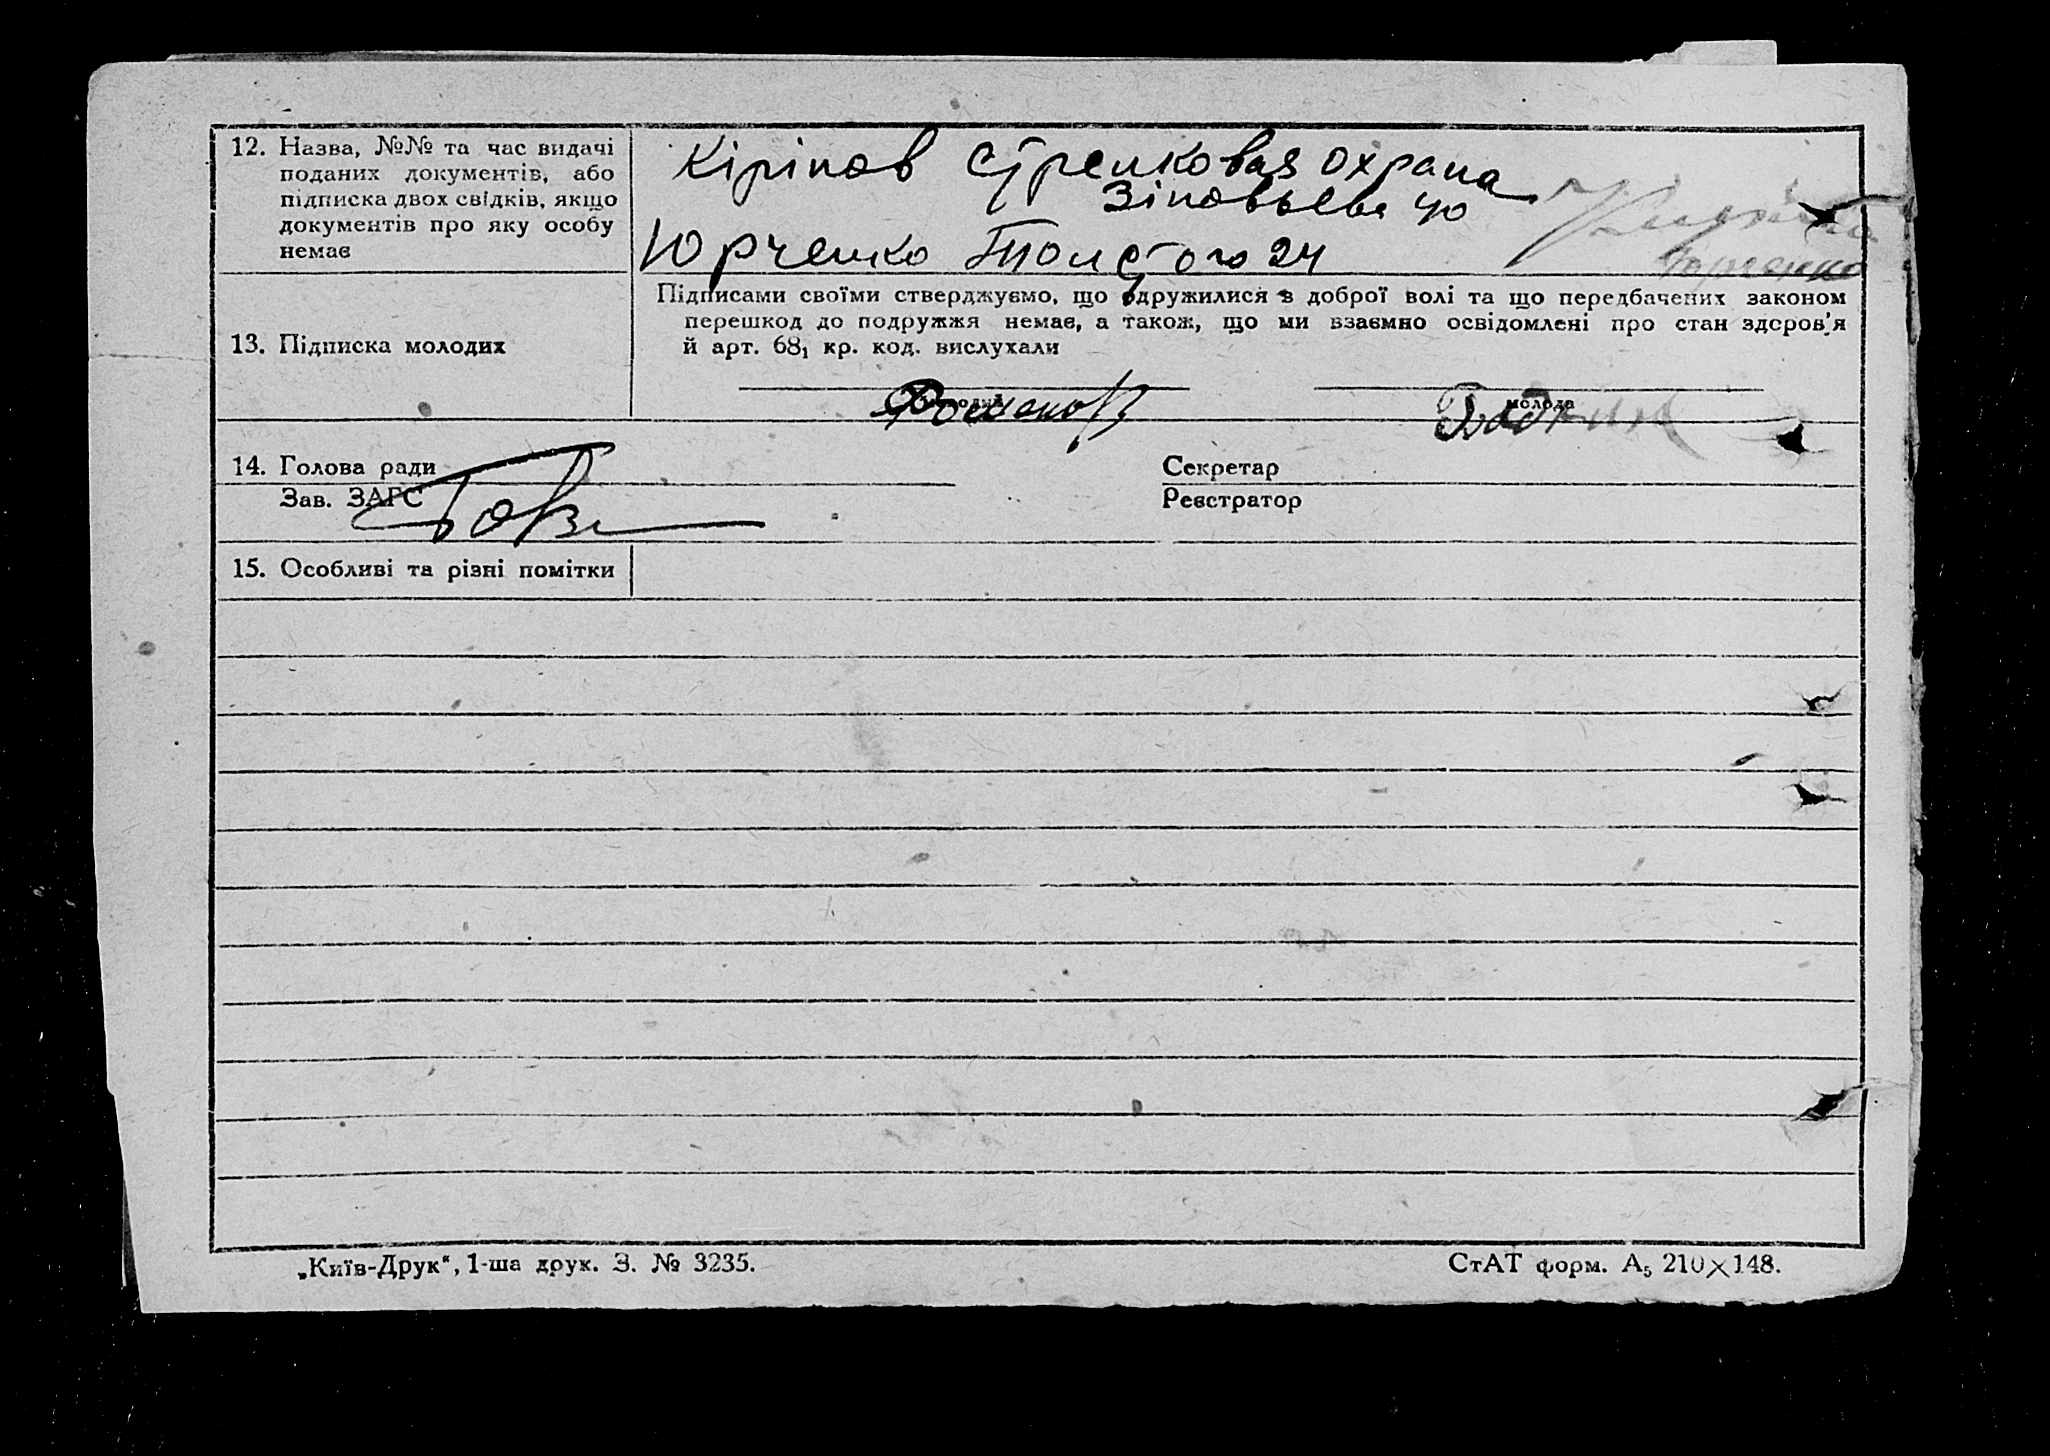 12. Назва, №№ та час видачі
поданих документів, або
підписка двох свідків, якщо
документів про яку особу
немає
Кіріпов Стрелковая охрана
Зіновьева 40
Юрченко Толстого 24
Юрченко
Підписами своїми стверджуємо, що одружилися з доброї волі та що передбачених законом
перешкод до подружжя немає, а також, що ми взаємно освідомлені про стан здоров'я
й арт. 68₁ кр. код. вислухали
13. Підписка молодих
молодий
молода
14. Голова ради
Секретар
Зав. ЗАГС
Реєстратор
15. Особливі та різні помітки
„Київ-Друк“, 1-ша друк. З. № 3235.
СтАТ форм. А₅ 210×148.